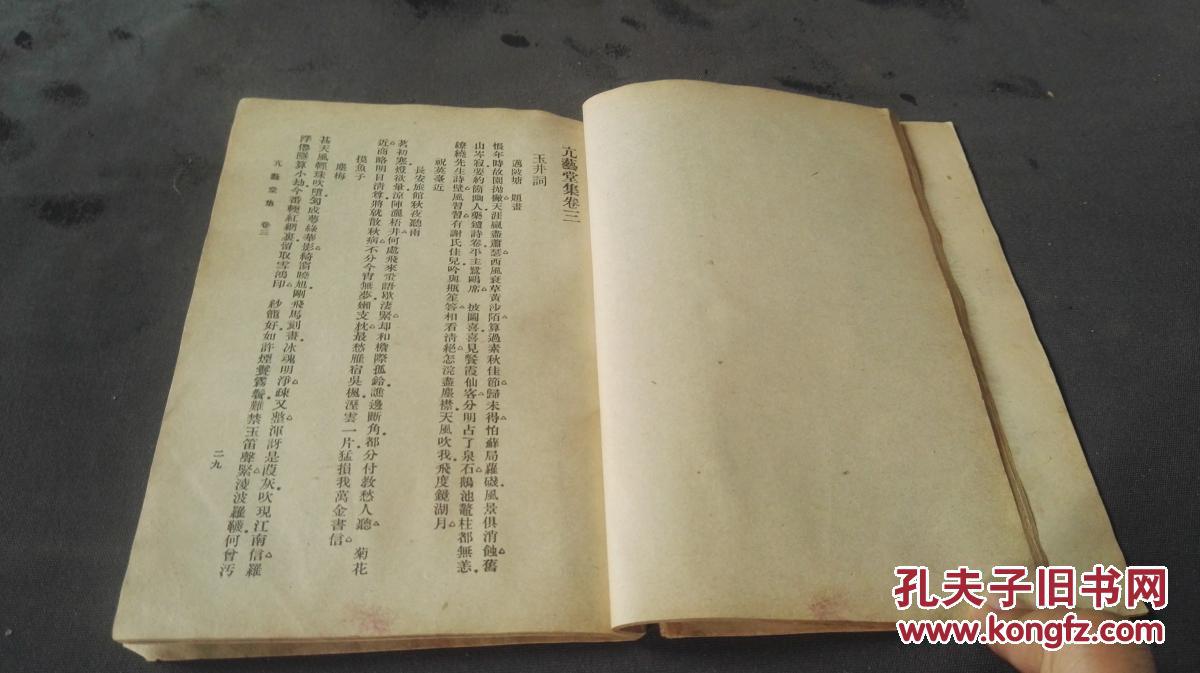 亢藝堂集卷三
玉井詞
邁陂塘 題畫
悵年時故園拋撇天涯嬴盡蕭瑟西風衰草黃沙陌算過素秋佳節歸未得怕蘇局蘿磯風景俱消蝕舊
山岑寂要約箇幽人藥鑪詩卷平主鷺鷗席 披圖喜喜見餐霞仙客分明占了泉石鵝池鼇柱都無恙
繚繞先生詩壁風習習有謝氏佳兒吟與瓶笙答相看淸絕怎浣盡塵襟天風吹我飛度鏡湖月
祝英臺近
長安旅館秋夜聽雨
茗初寒燈欲暈涼陣灑梧井何處飛來帝語歇淒緊却和檐際孤鈴譙邊斷角都分付教愁人聽 菊花
近商略明日淸尊將就散秋病不分今宵無夢嬾支枕最愁雁宿吳楓溼雲一片猛損我萬金書信
摸魚子
塵梅
甚天風輕珠吹墮匀成夢綠華影綺窗曉旭剛飛馬刻畫冰魂明淨疎又整渾訝是葭灰吹現江南信羅
浮倦醒算小劫今番輭紅綃裏留取雪鴻印 紗籠好如許煙鬟霧鬢難禁玉笛聲緊淩波羅韈何曾汚
亢藝堂集 卷三
二九
孔夫子旧书网
www.kongfz.com